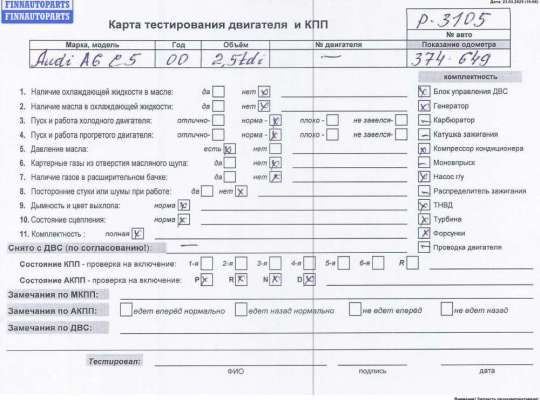 FINNAUTOPARTS
FINNAUTOPARTS
Карта тестирования двигателя и КПП
P-3105
№ авто
Марка, модель Год Объём № двигателя Показание одометра
Audi A6 C5 00 2,5tdi — 374-649
комплектность
1. Наличие охлаждающей жидкости в масле: да нет x
Блок управления ДВС
2. Наличие масла в охлаждающей жидкости: да нет x
Генератор
3. Пуск и работа холодного двигателя: отлично- норма - x плохо - не завелся-
Карбюратор
4. Пуск и работа прогретого двигателя: отлично- норма - x плохо - не завелся-
Катушка зажигания
5. Давление масла: есть x нет
Компрессор кондиционера
6. Картерные газы из отверстия масляного щупа: да нет x
Моновпрыск
7. Наличие газов в расширительном бачке: да нет x
Насос г/у
8. Посторонние стуки или шумы при работе: да нет x
Распределитель зажигания
9. Дымность и цвет выхлопа: норма x
ТНВД
10. Состояние сцепления: норма x
Турбина
11. Комплектность : полная x
Форсунки
Снято с ДВС (по согласованию!): —
Проводка двигателя
Состояние КПП - проверка на включение: 1-я 2-я 3-я 4-я 5-я 6-я R
Состояние АКПП - проверка на включение: P x R x N x D x
Замечания по МКПП:
Замечания по АКПП: едет вперёд нормально едет назад нормально не едет вперёд не едет назад
Замечания по ДВС:
Тестировал:
ФИО подпись дата